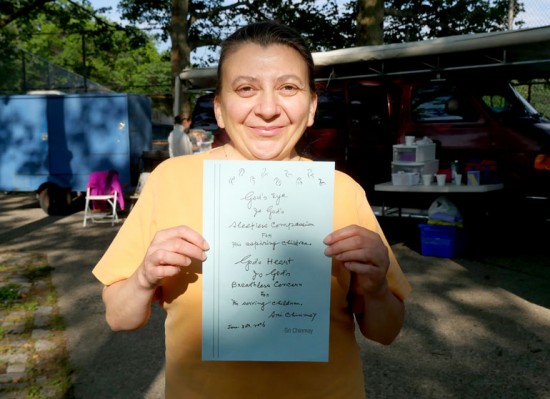 God's Eye
Is God's
Sleepless Compassion
For
His aspiring children.
God's Heart
Is God's
Breathless Concern
For
His serving children.
Sri Chinmoy
Sri Chinmoy